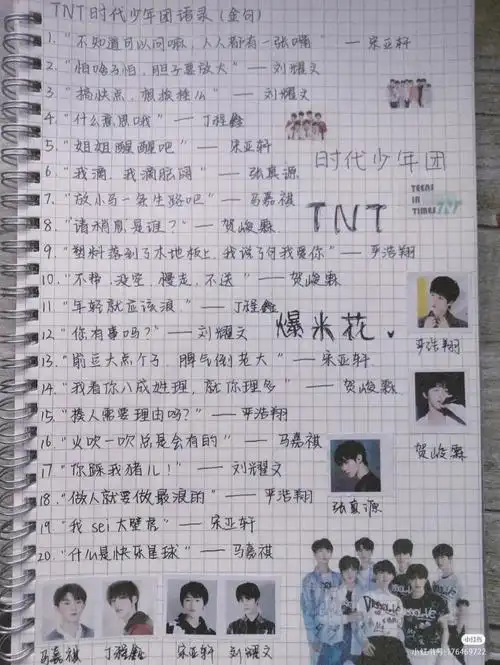 TNT时代少年团语录(金句)
1. "不知道可以问嘛,人人都有一张嘴" — 宋亚轩
2. "怕啥子怕,胆子要放大" — 刘耀文
3. "搞快点,想挨捶么" — 刘耀文
4. "什么意思哦" — 丁程鑫
5. "姐姐醒醒吧" — 宋亚轩
6. "我滴,我滴脏网" — 张真源
7. "放小马一条生路吧" — 马嘉祺
8. "请稍凯是谁?" — 贺峻霖
9. "塑料落到了木地板上,我说了句我爱你" — 严浩翔
10. "不带,没空,慢走,不送" — 贺峻霖
11. "年轻就应该浪" — 丁程鑫
12. "你有事吗?" — 刘耀文
13. "前豆大点个子,脾气倒老大" — 宋亚轩
14. "我看你八成姓理,就你理多" — 贺峻霖
15. "揍人需要理由吗?" — 严浩翔
16. "火吹一吹总是会有的" — 马嘉祺
17. "你踩我猪儿!" — 刘耀文
18. "做人就要做最浪的" — 严浩翔
19. "我sei大壁虎" — 宋亚轩
20. "什么是快乐星球" — 马嘉祺
时代少年团
TEENS
IN
TIMES
TNT
爆米花
严浩翔
贺峻霖
张真源
马嘉祺 丁程鑫 宋亚轩 刘耀文
小红书
小红书号:176469722